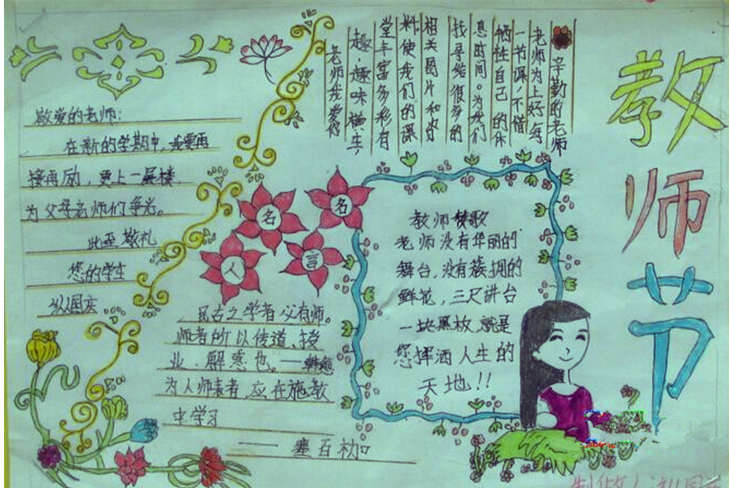 教师节
辛勤的老师
老师为上好每
一节课,不惜
牺牲自己的休
息时间。为我们
找寻给很多的
相关图片和资
料,使我们的课
堂丰富多彩有
趣,趣味横生,
老师我爱你
敬爱的老师:
在新的学期中,我要再
接再励,更上一层楼,
为父母老师们争光。
此至敬礼
您的学生
名人名言
古之学者必有师。
师者所以传道,授
业,解惑也。——韩愈
为人师表者,应在施教
中学习
——
教师赞歌
老师没有华丽的
舞台,没有簇拥的
鲜花,三尺讲台
一块黑板,就是
您挥洒人生的
天地!!
制作人: